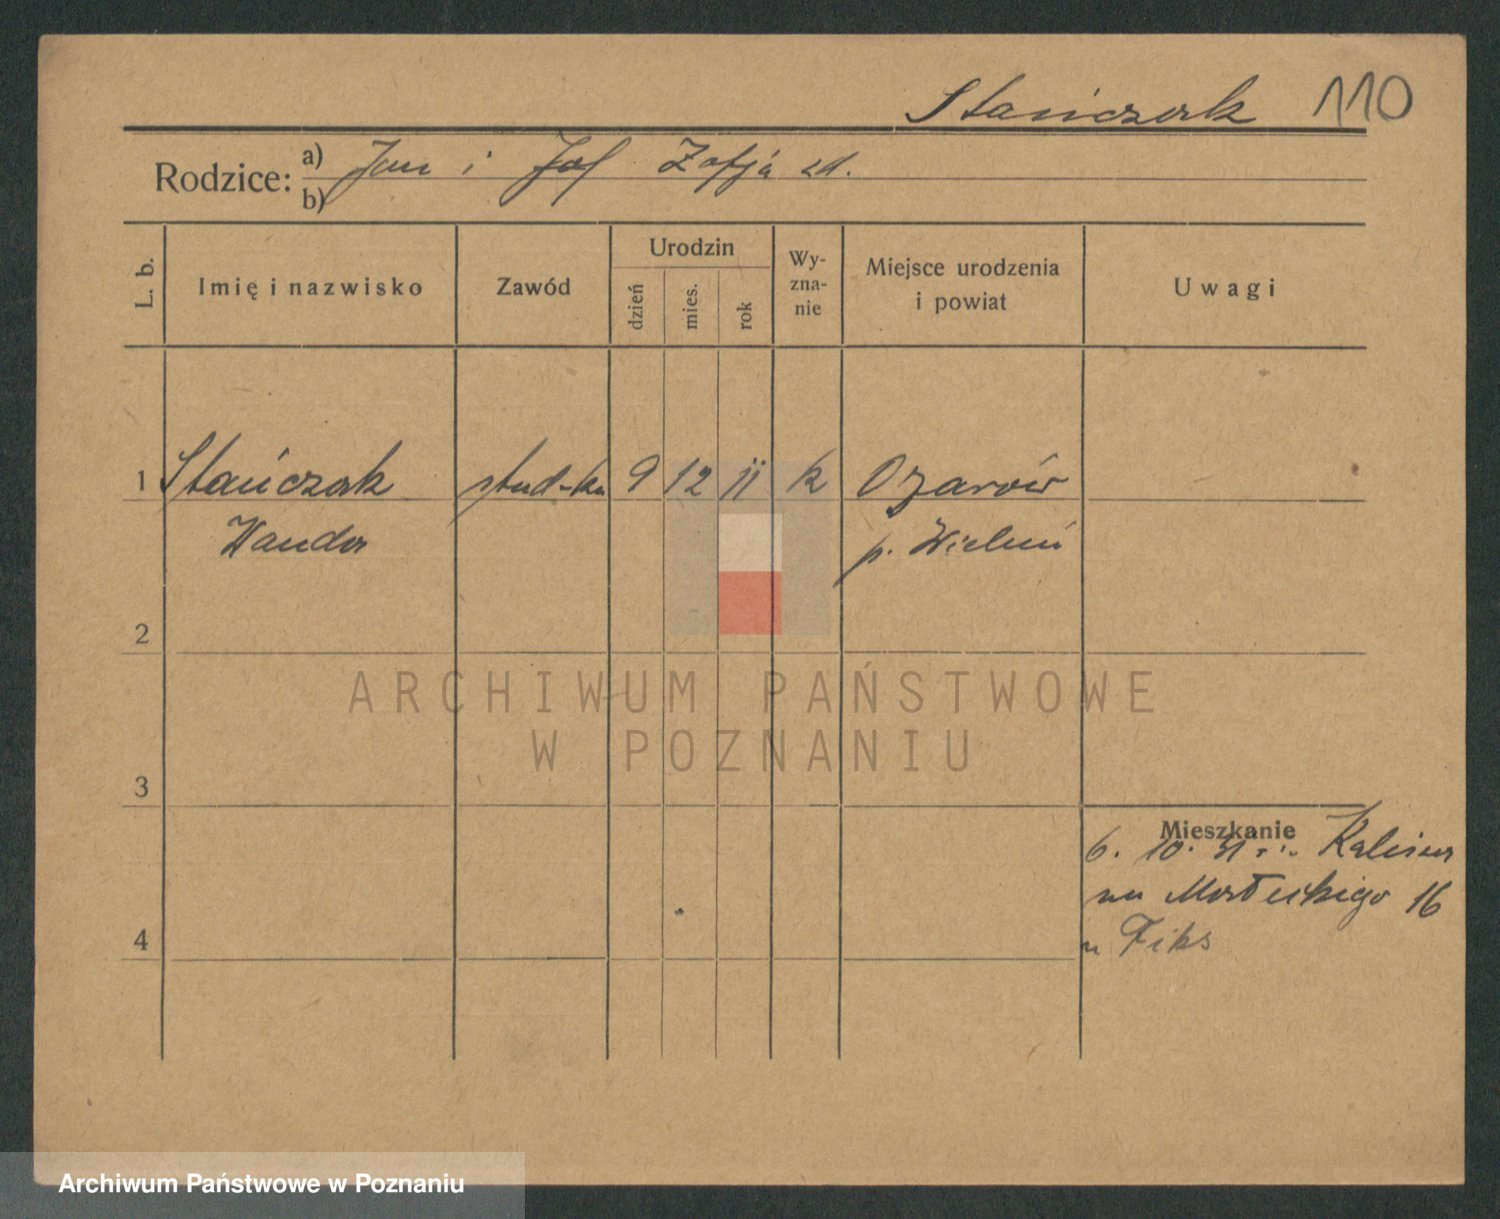 Stańczak 110
Rodzice: a) Jan i Zofja zd.
b)
L. b. Imię i nazwisko Zawód Urodzin dzień mies. rok Wy-zna-nie Miejsce urodzenia i powiat Uwagi
1 Stańczak stud-ka 9 12 11 k Ożarów
Wanda p. Wieluń
2
ARCHIWUM PAŃSTWOWE
W POZNANIU
3
Mieszkanie
6. 10. 31 Kalisza
na Małeckiego 16
u Fiks
4
Archiwum Państwowe w Poznaniu